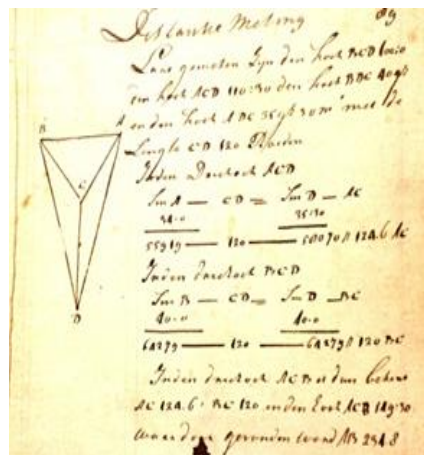 Distantie Meting 89
Laat gemeten Zyn den hoek BCD 100:0
den hoek ACD 110:30 den hoek BDC 40 gr
en den hoek ADC 35 gr 30 m met de
Lengte CD 120 Roeden
Inden Driehoek ACD
B A
Sin A — CD = Sin D — AC
34.0 35:30
C
55919 — 120 — 58070 / 124.6 AC
Inden driehoek BCD
Sin B — CD = Sin D — BC
D
40-0 40-0
64279 — 120 — 64279 / 120 BC
Inden driehoek ACB is dan bekent
AC 124.6 BC 120 en den hoek ACB 149:30
waar door gevonden word AB 234.8